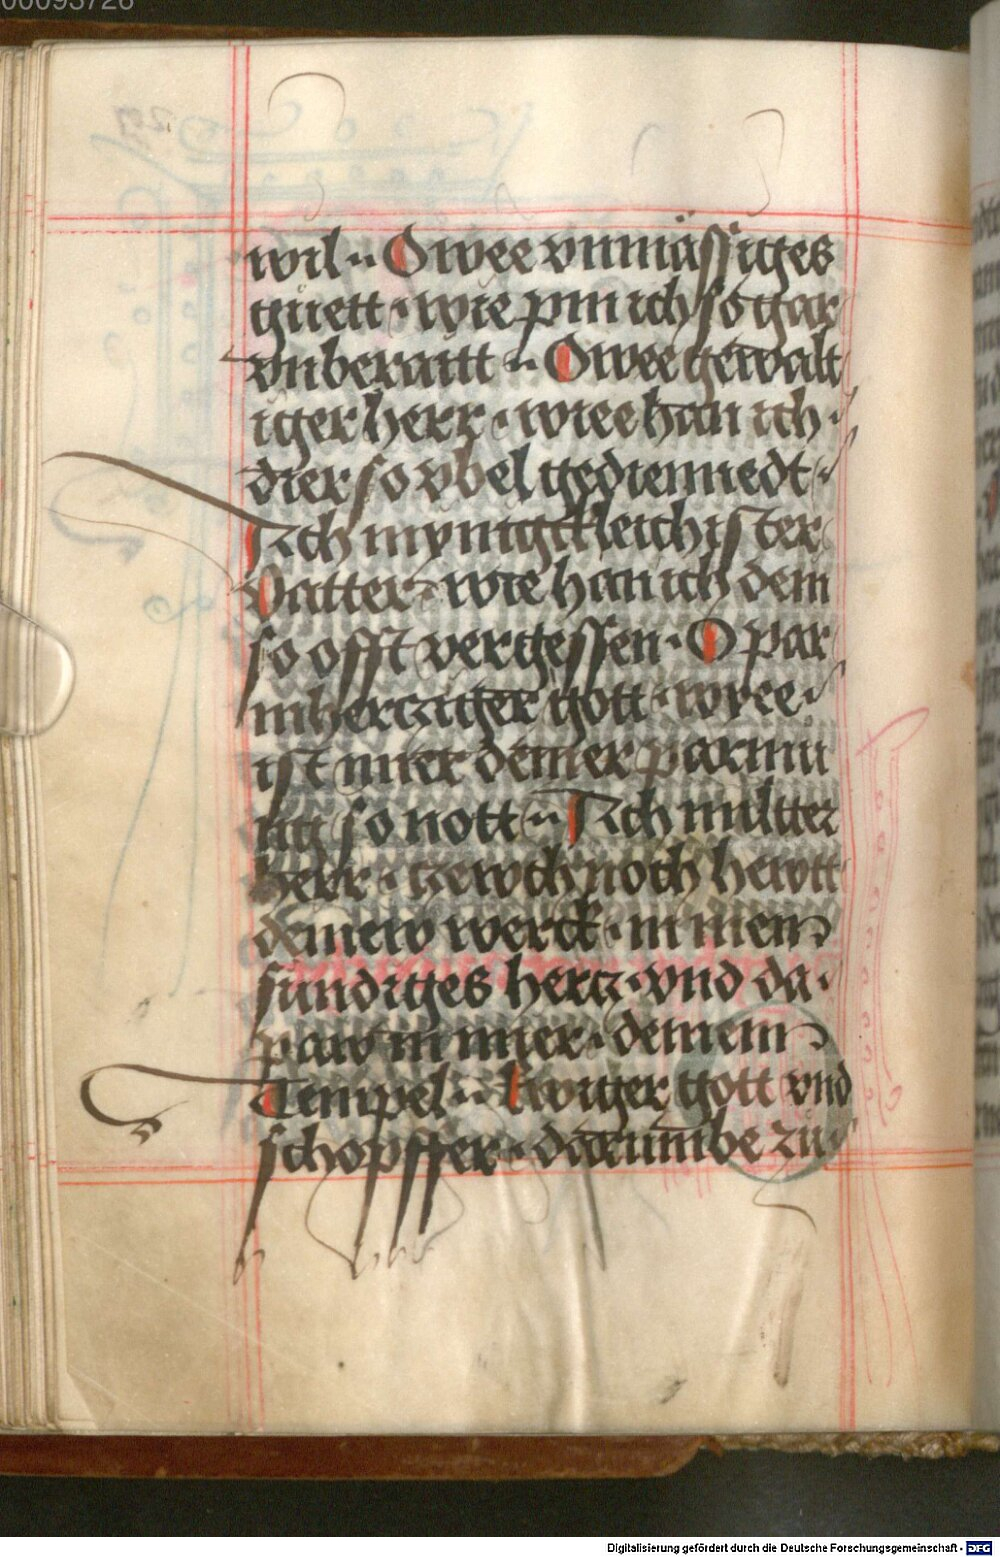 00093726
wil ·· O wee vnmässiges
güett · wie pin ich so gar
vnberaitt ·· O wee gewalt
iger herr · wiee han ich ·
dier so vbel gediennedt ·
Ach mynigckleichister
Vatter · wie han ich dem
so offt vergessen · O par
mhercziger gott · wyee ·
ist mier deiner parmu
ng so nott ·· Ach miltter
herr · zewch noch hewtt
deinew werck · in mein
sündiges hercz · vnd da ·
paw in mier · deinem
Tempel ·· Ewiger gott vnd
schopffer · darumbe zu
Digitalisierung gefördert durch die Deutsche Forschungsgemeinschaft - DFG